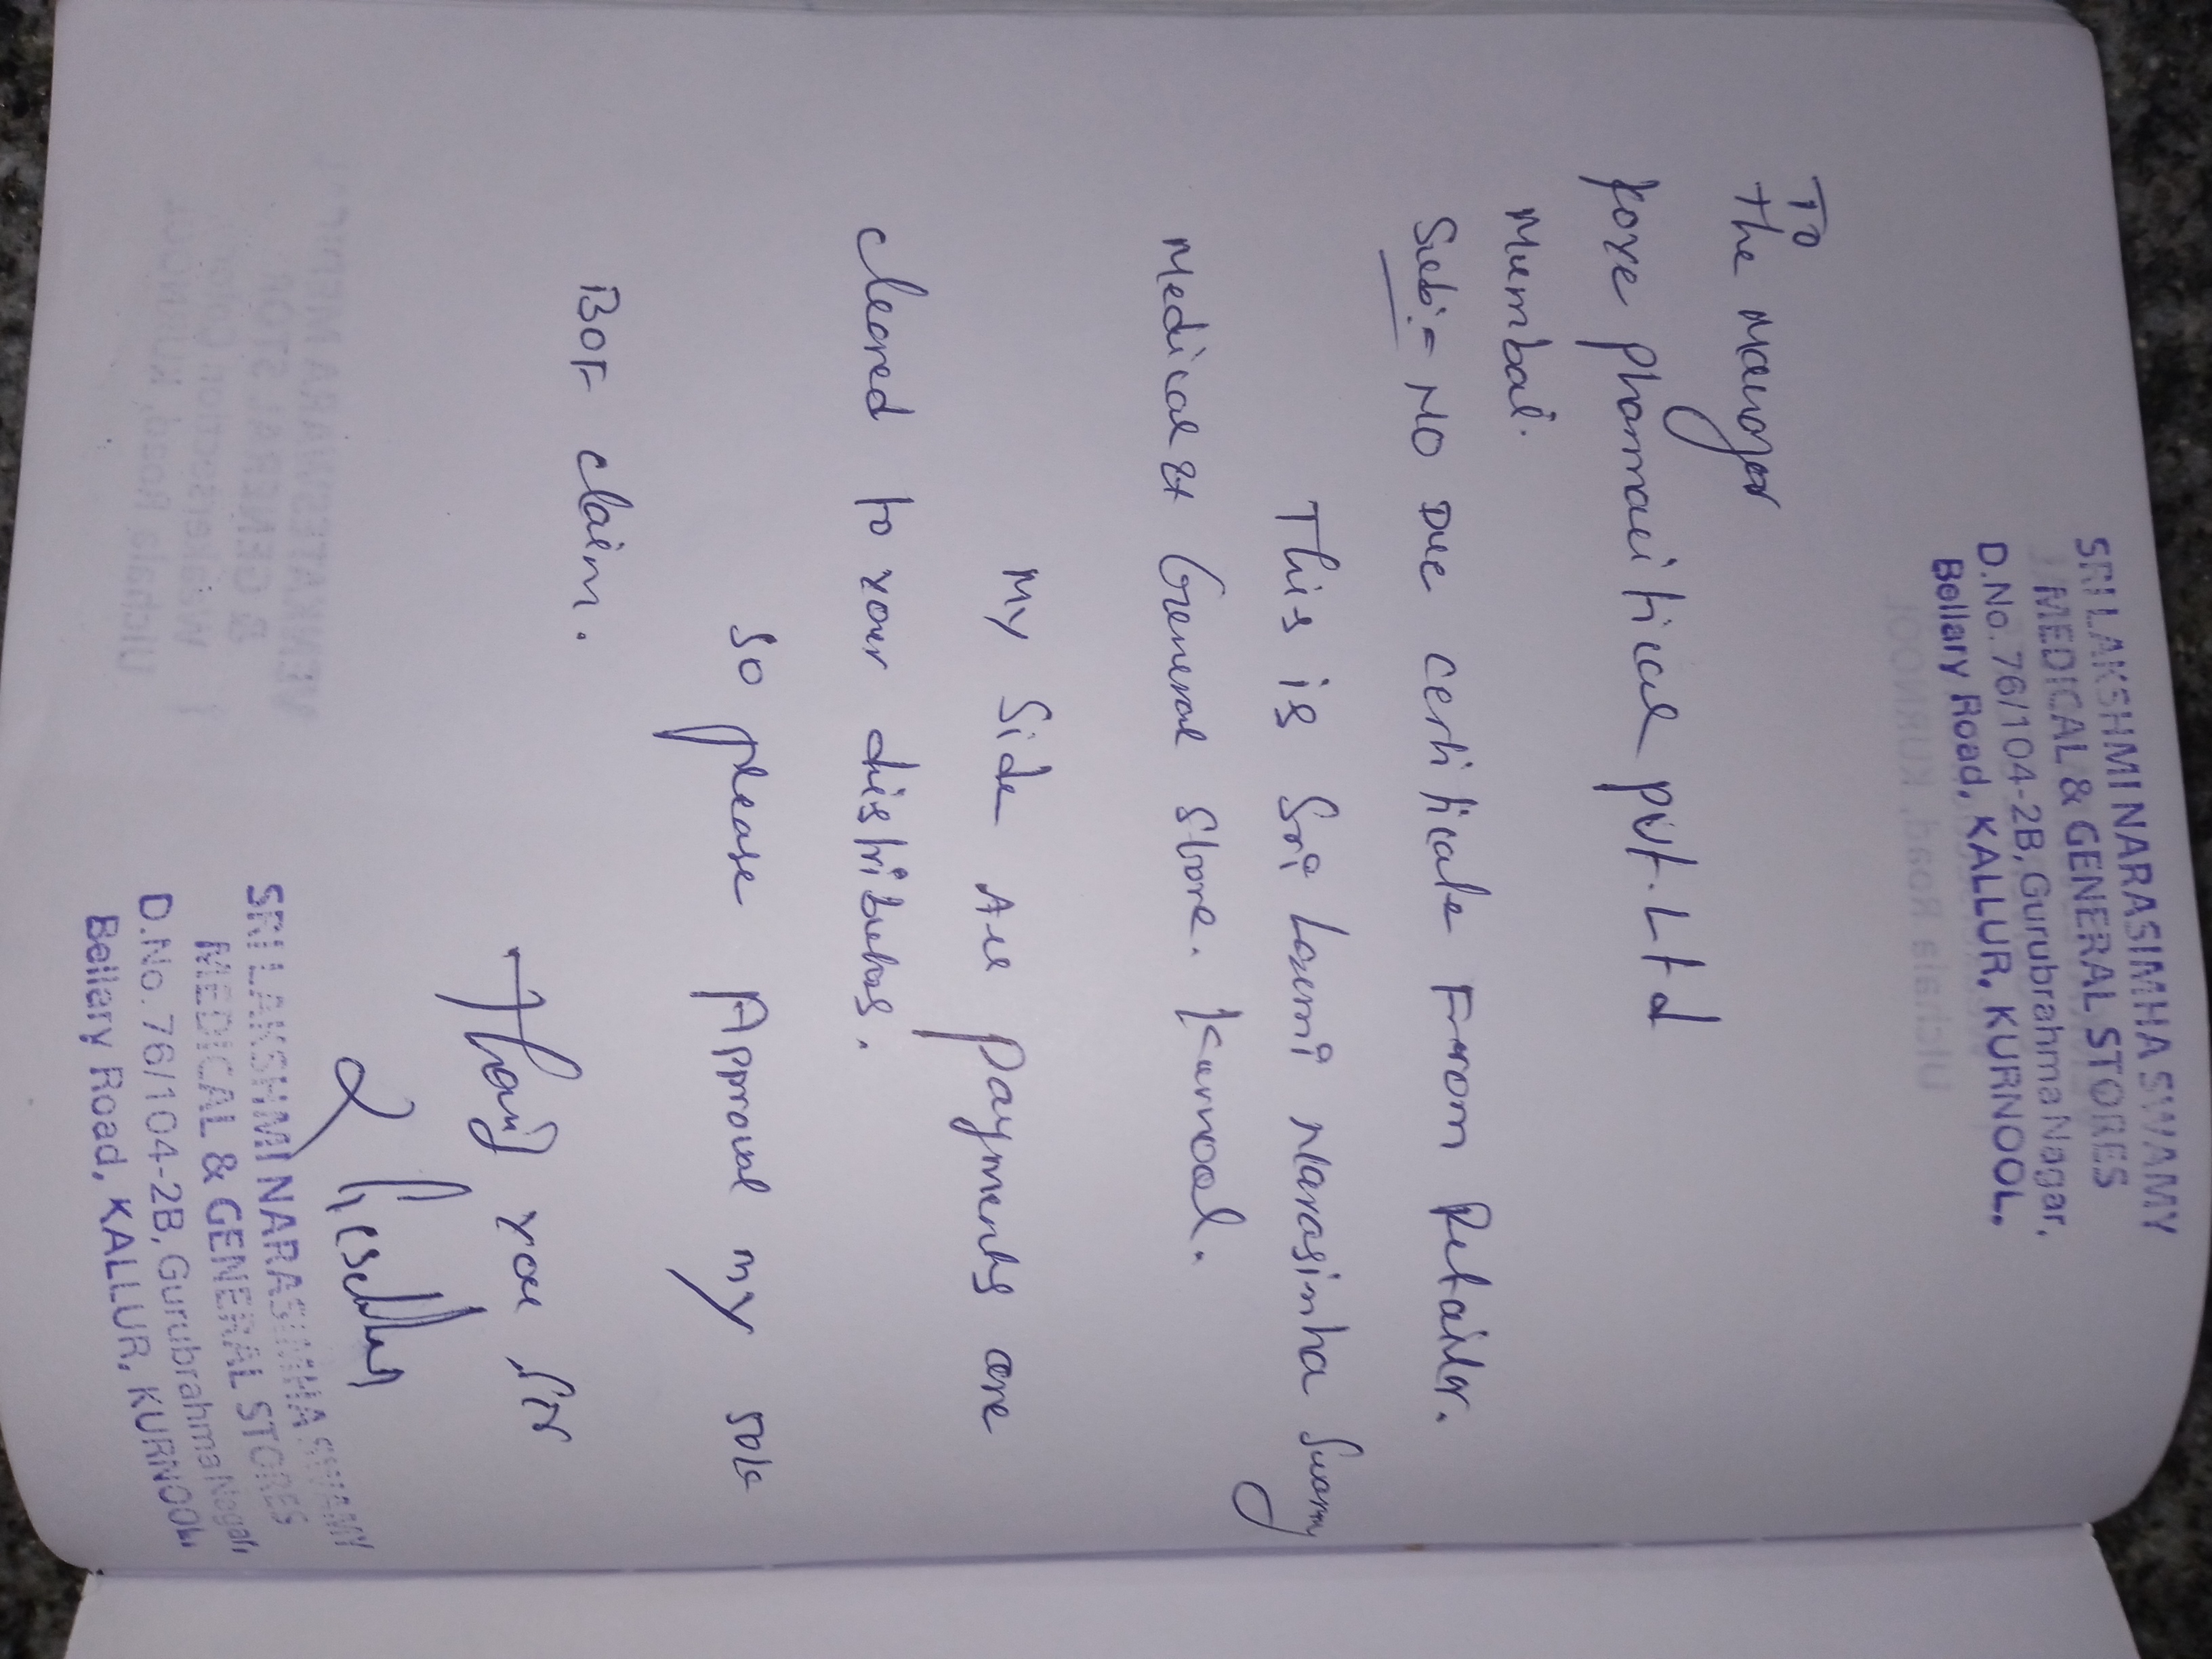 SRI LAKSHMI NARASIMHA SWAMY
MEDICAL & GENERAL STORES
D.No. 76/104-2B, Gurubrahma Nagar,
Bellary Road, KALLUR, KURNOOL.
To
The Manager
Pharmaceitical PVT. Ltd
Mumbai.
Sub:- NO Due certificate From Retailer.
This is Sri Laxmi Narasimha Swamy
Medical & General Store. Kurnool.
My Side All Payments are
cleared to your distributors.
So please Approval my sale
BOF claim.
Thank you Sir
SRI LAKSHMI NARASIMHA SWAMY
MEDICAL & GENERAL STORES
D.No. 76/104-2B, Gurubrahma Nagar,
Bellary Road, KALLUR, KURNOOL.